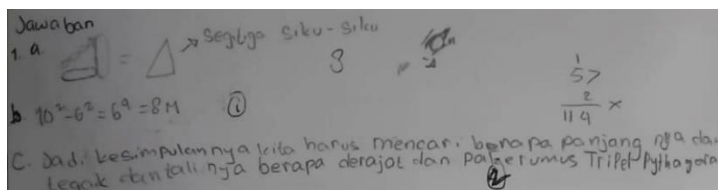 Jawaban
1. a. = → Segitiga siku-siku 8
b. 10² - 6² = 6⁹ = 8 M ①
1
57
2 ×
114
C. Jadi kesimpulannya kita harus mencari berapa panjang nya da
tegak dan tali nya berapa derajat dan rumus Tripel Pythagora
2